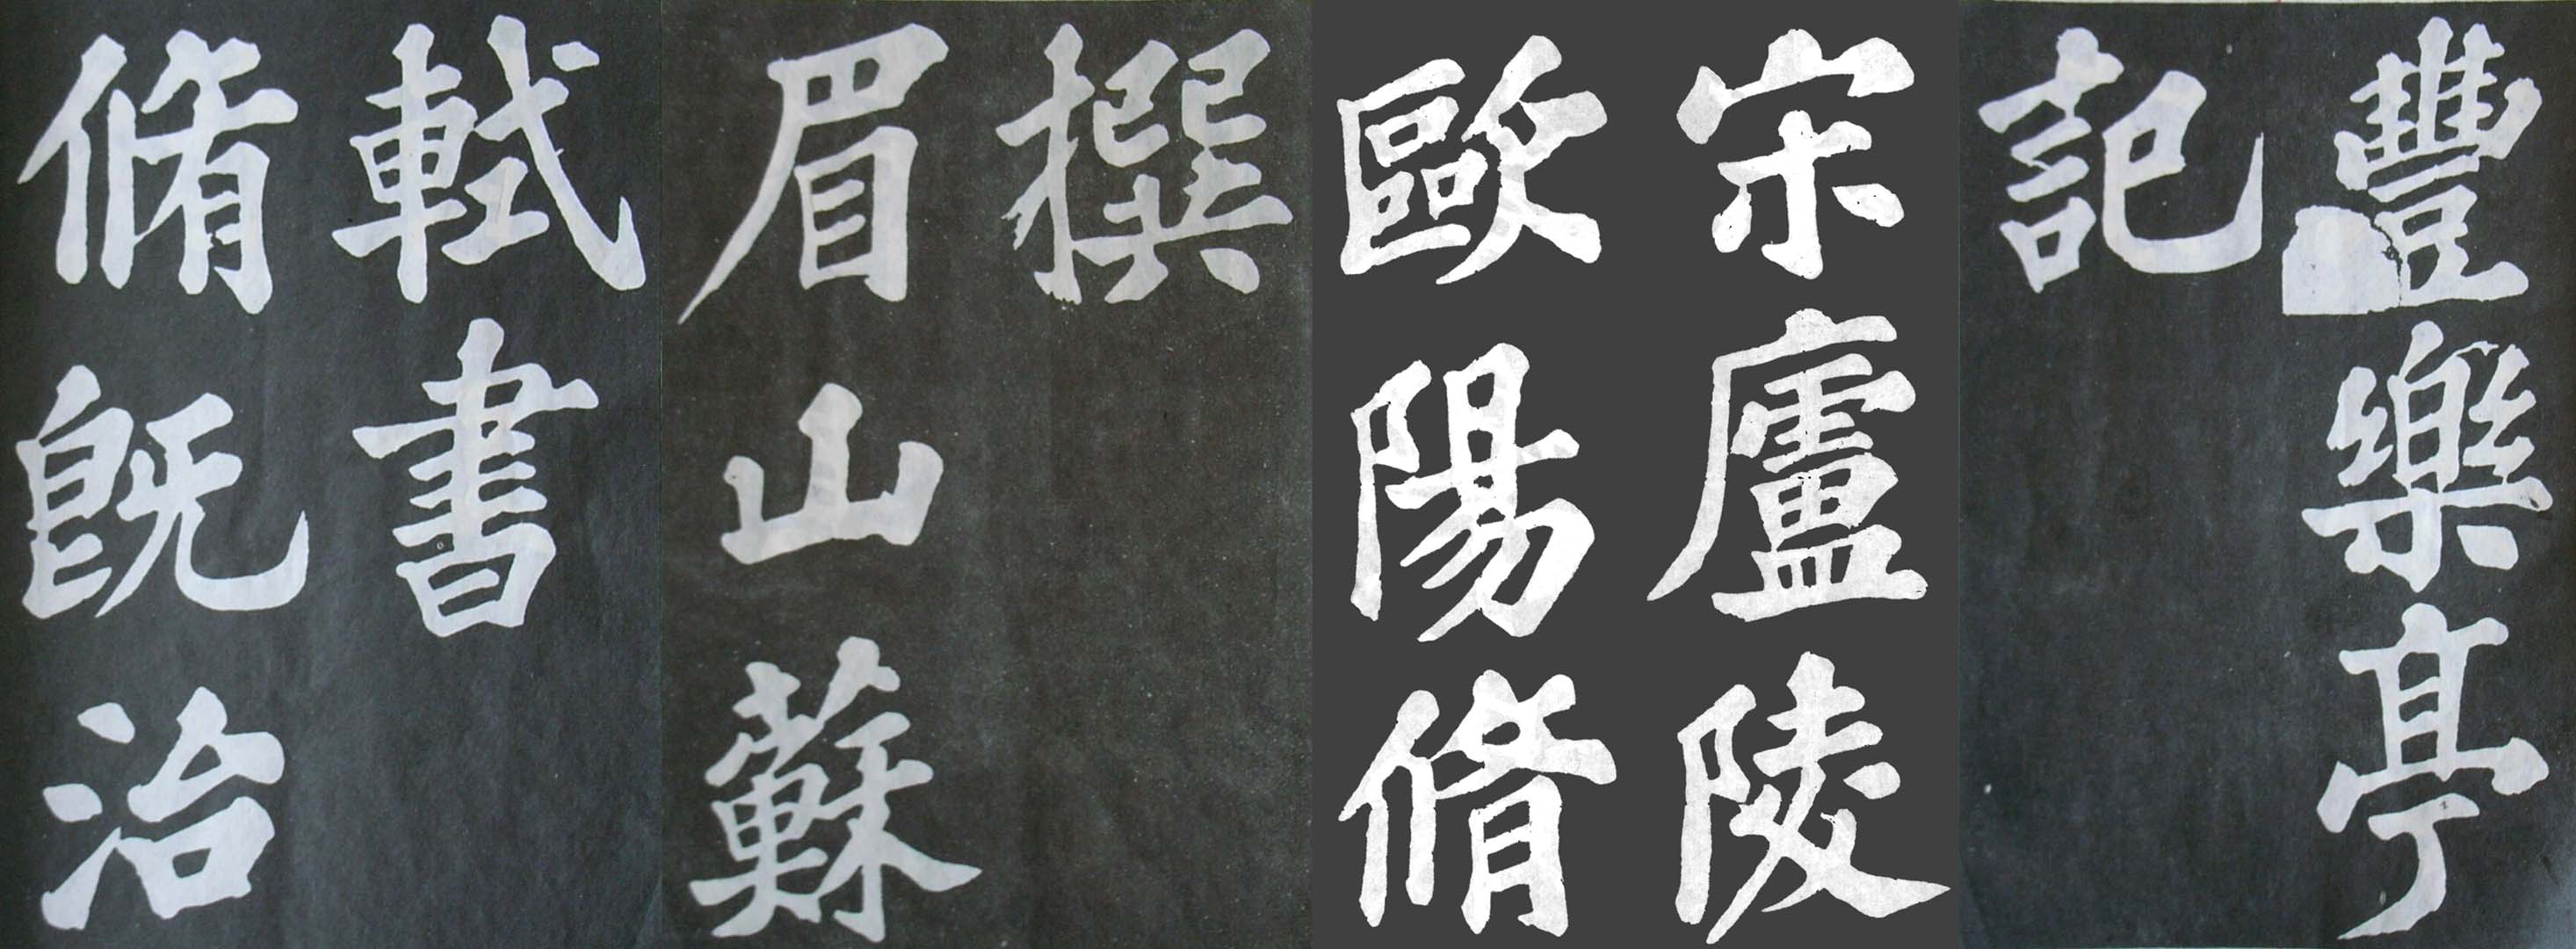 豐樂亭
記
宋廬陵
歐陽脩
撰
眉山蘇
軾書
脩旣治